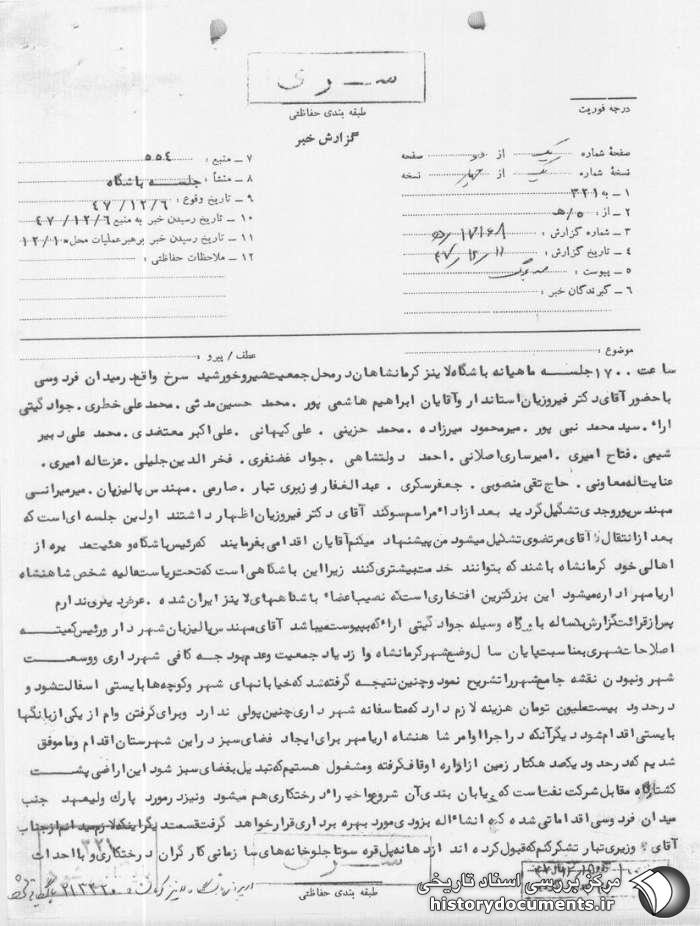 سـری
طبقه بندی حفاظتی
گزارش خبر
درجه فوریت
صفحهٔ شماره یک از دو صفحه
نسخهٔ شماره یک از چهار نسخه
۱ ـ به ۳۲۱
۲ ـ از : ۵/هـ
۳ ـ شماره گزارش : ۱۷۱۶۸/۵هـ
۴ ـ تاریخ گزارش : ۴۷/۱۲/۱۱
۵ ـ پیوست : سه برگ
۶ ـ گیرندگان خبر :
۷ ـ منبع : ۵۵۴
۸ ـ منشأ : جلسه باشگاه
۹ ـ تاریخ وقوع : ۴۷/۱۲/۶
۱۰ ـ تاریخ رسیدن خبر به منبع ۴۷/۱۲/۶
۱۱ ـ تاریخ رسیدن خبر برهبر عملیات محل ۱۲/۱۰
۱۲ ـ ملاحظات حفاظتی :
موضوع :
عطف / پیرو :
ساعت ۱۷۰۰ جلسه ماهیانه باشگاه لاینز کرمانشاهان در محل جمعیت شیر و خورشید سرخ واقع در میدان فردوسی
با حضور آقای دکتر فیروزیان استاندار و آقایان ابراهیم هاشمی پور . محمد حسین مدنی . محمد علی خطری . جواد گیتی
اراء . سید محمد نبی پور . میرمحمود میرزاده . محمد حزینی . علی کیهانی . علی اکبر معتضدی . محمد علی دبیر
شیمی . فتاح امیری . امیر ساری اصلانی . احمد دولتشاهی . جواد غضنفری . فخرالدین جلیلی . عزت اله امیری .
عنایت اله معاونی . حاج تقی منصوبی . جعفر سکری . عبدالغفار وزیری تبار . صارمی . مهندس پالیزبان . میرمیرانی
مهندس پوروجدی تشکیل گردید بعد از اداء مراسم سوگند آقای دکتر فیروزیان اظهار داشتند اولین جلسه ای است که
بعد از انتقال آقای مرتضوی تشکیل میشود من پیشنهاد میکنم آقایان اقدامی بفرمایند که رئیس باشگاه و هئیت مدیره از
اهالی خود کرمانشاه باشند که بتوانند خدمت بیشتری کنند زیرا این باشگاهی است که تحت ریاست عالیه شخص شاهنشاه
اریامهر اداره میشود این بزرگترین افتخاری است که نصیب اعضاء باشگاههای لاینز ایران شده . عرض دیگری ندارم
پس از قرائت گزارش ده ساله باشگاه وسیله جواد گیتی اراء که به پیوست میباشد آقای مهندس پالیزبان شهردار و رئیس کمیته
اصلاحات شهری بمناسبت پایان سال وضع شهر کرمانشاه و ازدیاد جمعیت و عدم بودجه کافی شهرداری و وسعت
شهر و نبودن نقشه جامع شهر را تشریح نمود و چنین نتیجه گرفته شد که خیابانهای شهر و کوچه ها بایستی اسفالت شود و
در حدود بیست ملیون تومان هزینه لازم دارد که متاسفانه شهرداری چنین پولی ندارد و برای گرفتن وام از یکی از بانگها
بایستی اقدام شود دیگر آنکه در اجرا اوامر شاهنشاه اریامهر برای ایجاد فضای سبز در این شهرستان اقدام و ما موفق
شدیم که در حدود یکصد هکتار زمین از اداره اوقاف گرفته و مشغول هستیم که تبدیل بفضای سبز شود این اراضی پشت
کشتارگاه مقابل شرکت نفت است که خیابان بندی آن شروع و اخیراً درختکاری هم میشود و نیز در مورد پارک ولیعهد جنب
میدان فردوسی اقداماتی شده که انشاءاله بزودی مورد بهره برداری قرار خواهد گرفت قسمت دیگر اینکه لازم میدانم از جناب
آقای وزیری تبار تشکر کنم که قبول کرده اند از دهانه پل قره سو تا جلو خانه های سازمانی کارگران درختکاری و با احداث
سـری
طبقه بندی حفاظتی
۳۲۱
مرکز بررسی اسناد تاریخی
historydocuments.ir